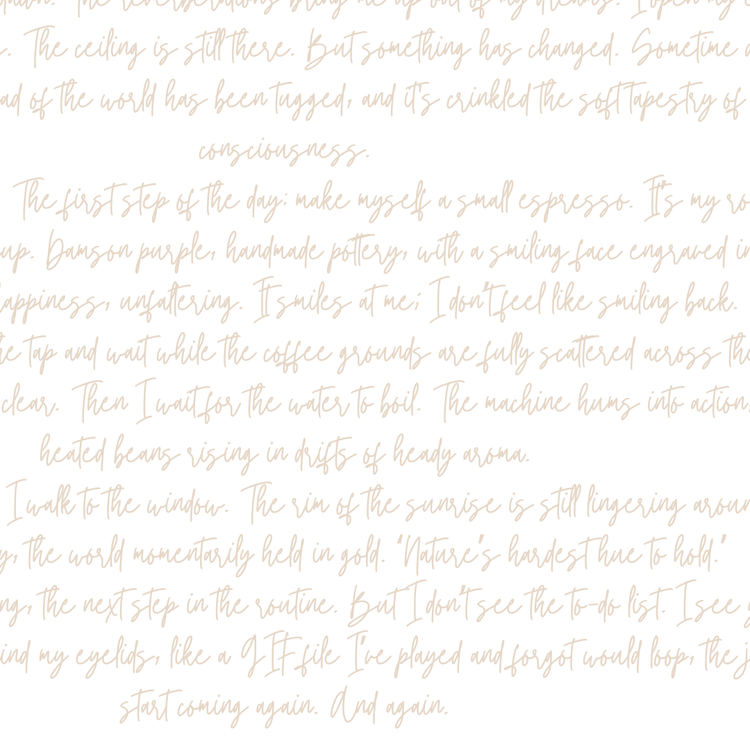 dawn. The reverberations bring me up out of my dreams. I open my
. The ceiling is still there. But something has changed. Sometime
ad of the world has been tugged, and it's crinkled the soft tapestry of
consciousness.
The first step of the day: make myself a small espresso. It's my ro
up. Damson purple, handmade pottery, with a smiling face engraved in
appiness, unfaltering. It smiles at me; I don't feel like smiling back.
he tap and wait while the coffee grounds are fully scattered across the
clear. Then I wait for the water to boil. The machine hums into action,
heated beans rising in drifts of heady aroma.
I walk to the window. The rim of the sunrise is still lingering aroun
y, the world momentarily held in gold. "Nature's hardest hue to hold."
ng, the next step in the routine. But I don't see the to-do list. I see
ind my eyelids, like a GIF file I've played and forgot would loop, the
start coming again. And again.